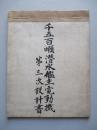 千五百噸潜水艦主電動機
第三次設計書